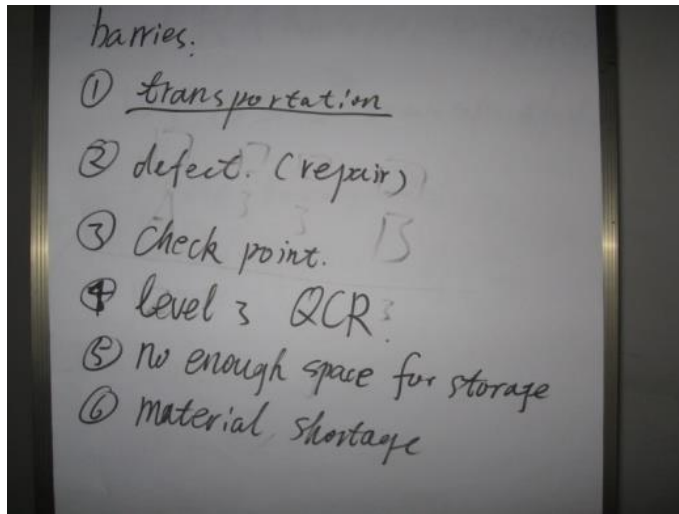 barries:
① transportation
② defect. (repair)
③ check point.
④ level 3 QCR
⑤ no enough space for storage
⑥ material shortage